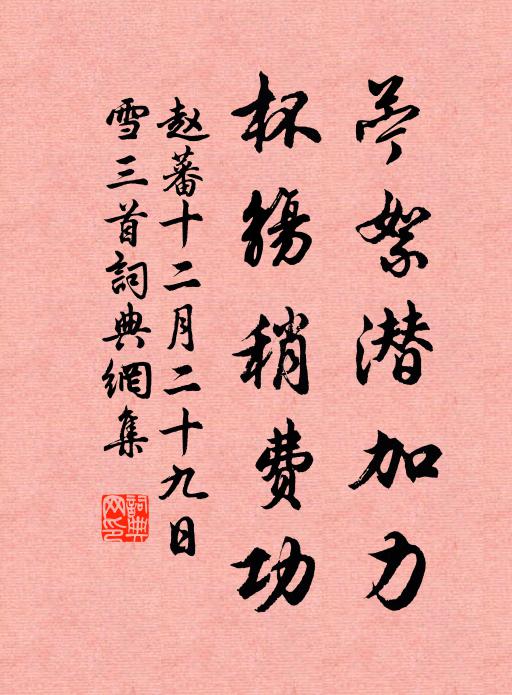 苧絮潜加力
杯觴稍费功
赵蕃十二月二十九日
雪三首詞典網集
詞典網印